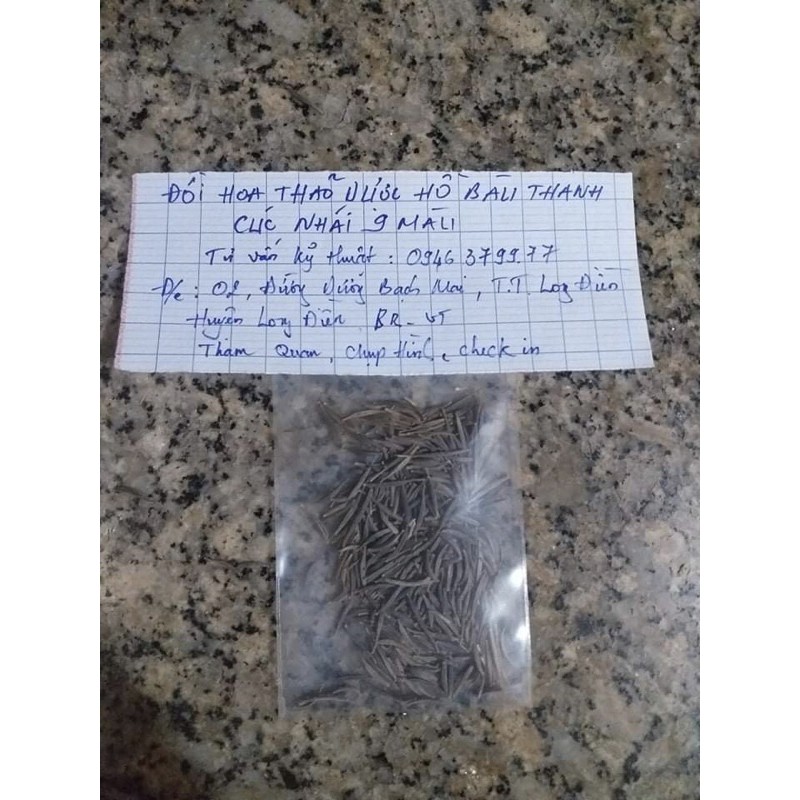 ĐỒI HOA THẢO DƯỢC HỒ BÀU THANH
CÚC NHÁI 9 MALI
Tư vấn kỹ thuật: 0946 379977
Đ/c: 02, Đường Dương Bạch Mai, T.T Long Điền
Huyện Long Điền BR-VT
Tham Quan, chụp Hình, check in